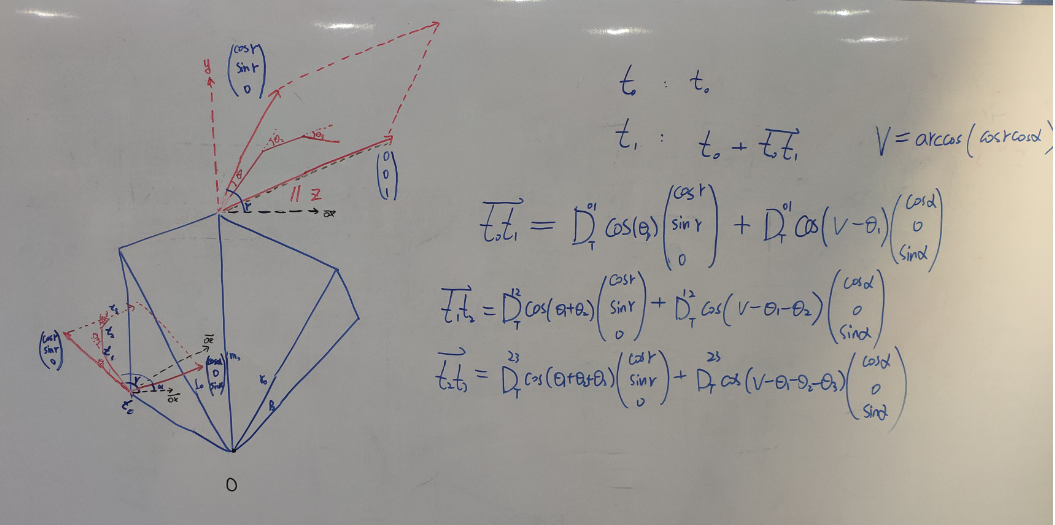 y
(cosr
sinr
0)
θ
θ₂
θ₃
r
// Z
ox
(0
0
1)
(cosr
sinr
0)
r
α
ox
(cosα
0
sinα)
L₀
m₁
B
O
t₀ : t₀
t₁ : t₀ + t₀t₁
V = arccos(cosrcosα)
t₀t₁ = D_T^01 cos(θ₁) (cosr sinr 0) + D_T^01 cos(V-θ₁) (cosα 0 sinα)
t₁t₂ = D_T^12 cos(θ₁+θ₂) (cosr sinr 0) + D_T^12 cos(V-θ₁-θ₂) (cosα 0 sinα)
t₂t₃ = D_T^23 cos(θ₁+θ₂+θ₃) (cosr sinr 0) + D_T^23 cos(V-θ₁-θ₂-θ₃) (cosα 0 sinα)